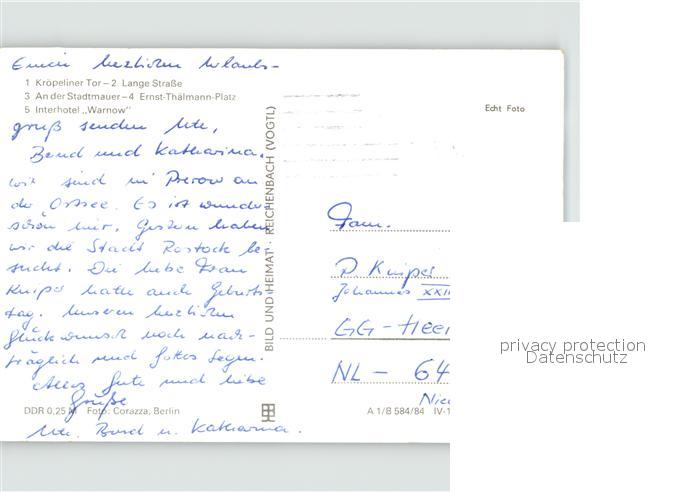 Einen herzlichen Urlaubs-
1 Kröpeliner Tor – 2 Lange Straße
3 An der Stadtmauer – 4 Ernst-Thälmann-Platz
5 Interhotel „Warnow"
gruß senden Ute,
Bernd und Katharina.
wir sind in Prerow an
der Ostsee. Es ist wunder
schön hier. Gestern haben
wir die Stadt Rostock be-
sucht. Die liebe Frau
Knipes hatte auch Geburts-
tag. Unseren herzlichen
Glückwunsch noch nach-
träglich und Gottes Segen.
Alles Gute und liebe
Grüße
DDR 0,25 M Foto: Corazza, Berlin
Ute, Bernd u. Katharina.
BILD UND HEIMAT REICHENBACH (VOGTL)
Echt Foto
Fam.
P Knipes
Johannes XXIII
GG-Heer
NL – 64
Nie
A 1/B 584/84 IV-1
privacy protection
Datenschutz